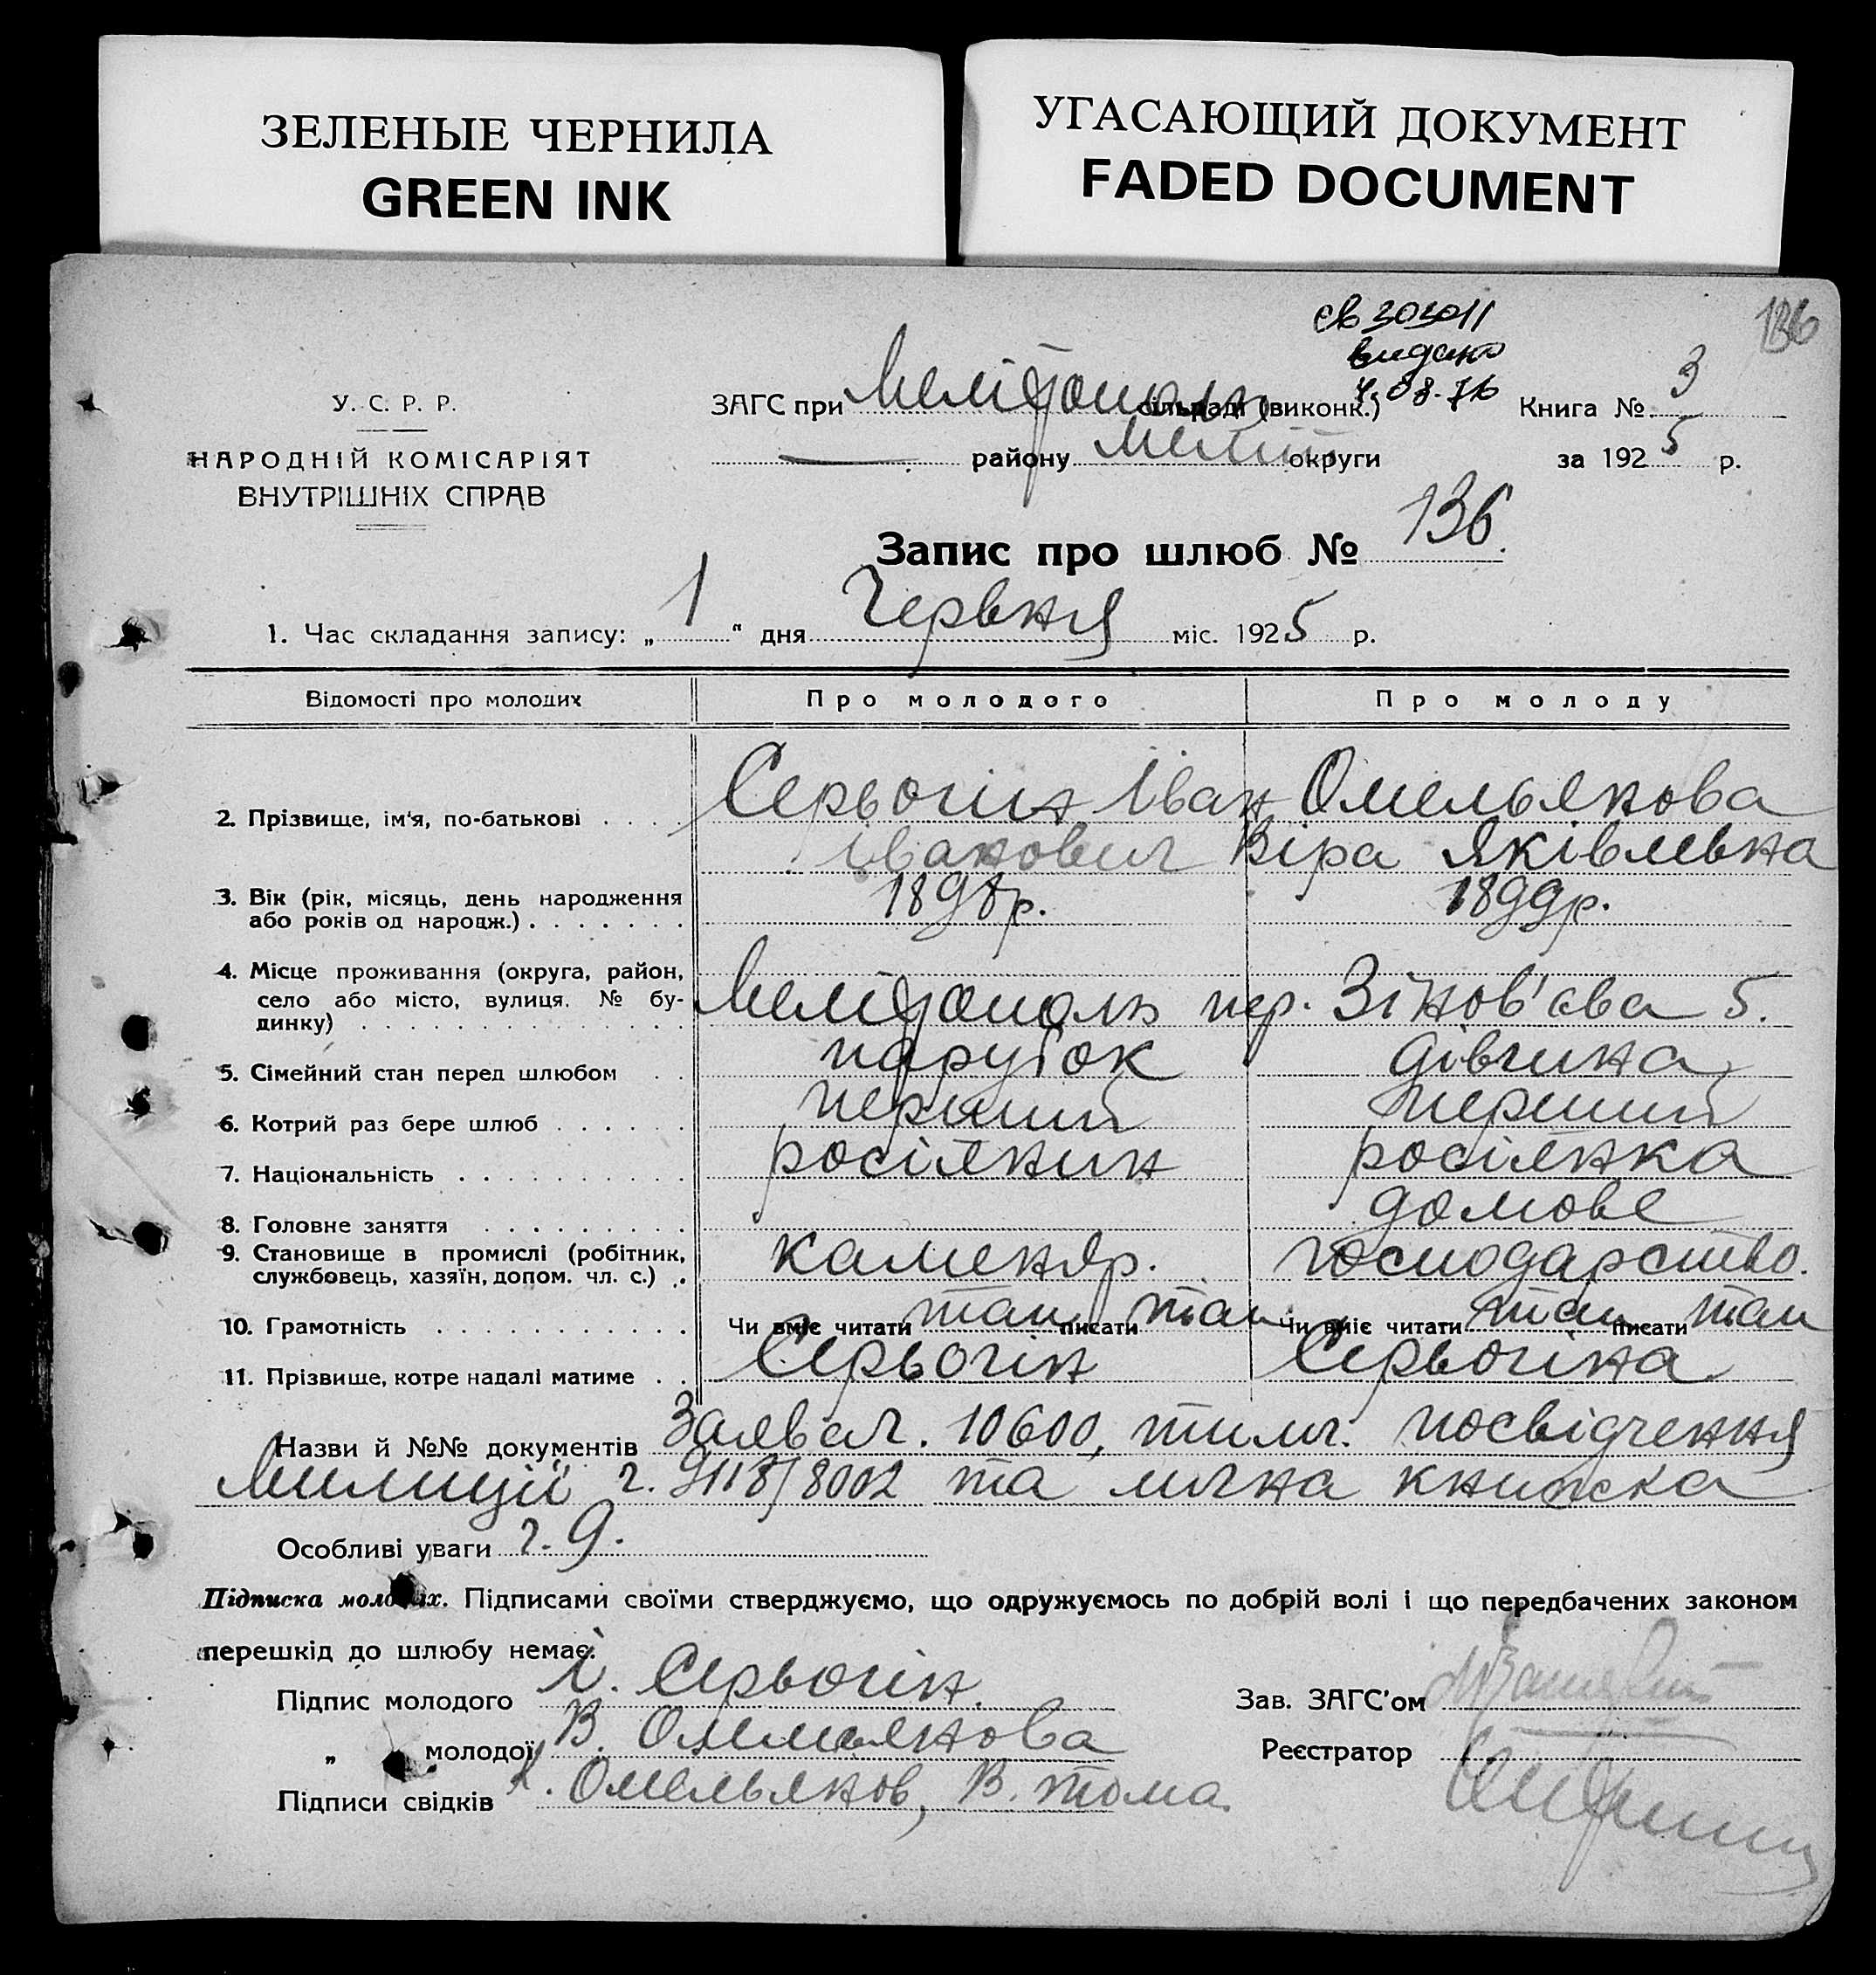 ЗЕЛЕНЫЕ ЧЕРНИЛА
GREEN INK
УГАСАЮЩИЙ ДОКУМЕНТ
FADED DOCUMENT
136
св 303011
видано
4.08.76
У. С. Р. Р.
НАРОДНІЙ КОМІСАРІЯТ
ВНУТРІШНІХ СПРАВ
ЗАГС при Мелітополь сільраді (виконк.) Книга № 3
— району Меліт округи за 1925 р.
Запис про шлюб № 136.
1. Час складання запису: „ 1 “ дня Червня міс. 1925 р.
Відомості про молодих Про молодого Про молоду
2. Прізвище, ім'я, по-батькові Серьогін Іван Омельянова
Іванович Віра Яківлевна
3. Вік (рік, місяць, день народження 1898р. 1899р.
або років од народж.)
4. Місце проживання (округа, район,
село або місто, вулиця. № бу- Мелітополь пер. Зінов'єва 5.
динку)
5. Сімейний стан перед шлюбом парубок дівчина
6. Котрий раз бере шлюб перший перший
7. Національність росіянин росіянка
8. Головне заняття домове
9. Становище в промислі (робітник, каменяр. господарство.
службовець, хазяїн, допом. чл. с.)
10. Грамотність Чи вміє читати так писати так Чи вміє читати так писати так
11. Прізвище, котре надалі матиме Серьогін Серьогіна
Назви й №№ документів Заява ч. 10600, тимч. посвідчення
Милиції ч. 9118/8002 та лічна книжка
Особливі уваги ч. 9.
Підписка молодих. Підписами своїми стверджуємо, що одружуємось по добрій волі і що передбачених законом
перешкід до шлюбу немає.
Підпис молодого І. Серьогін. Зав. ЗАГС'ом
„ молодої В. Омельянова Реєстратор
Підписи свідків Омельянов, В. Тома